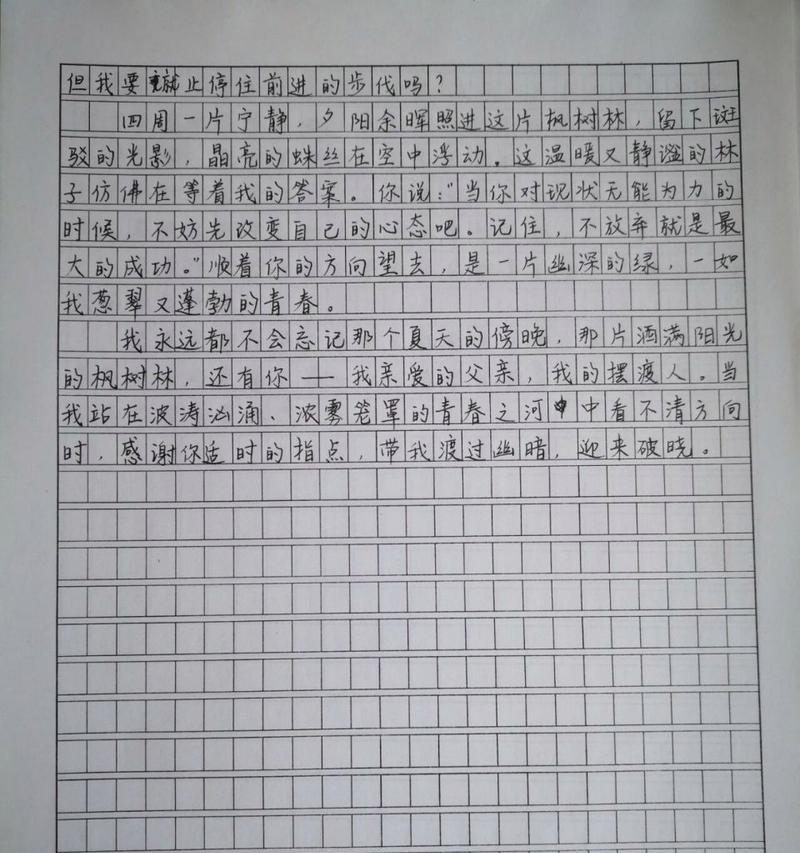 但我要就止停住前进的步代吗？
四周一片宁静，夕阳余晖照进这片枫树林，留下斑
驳的光影，晶亮的蛛丝在空中浮动。这温暖又静谧的林
子仿佛在等着我的答案。你说：“当你对现状无能为力的
时候，不妨先改变自己的心态吧。记住，不放弃就是最
大的成功。”顺着你的方向望去，是一片幽深的绿，一如
我葱翠又蓬勃的青春。
我永远都不会忘记那个夏天的傍晚，那片洒满阳光
的枫树林，还有你——我亲爱的父亲，我的摆渡人。当
我站在波涛汹涌、浓雾笼罩的青春之河中看不清方向
时，感谢你适时的指点，带我渡过幽暗，迎来破晓。